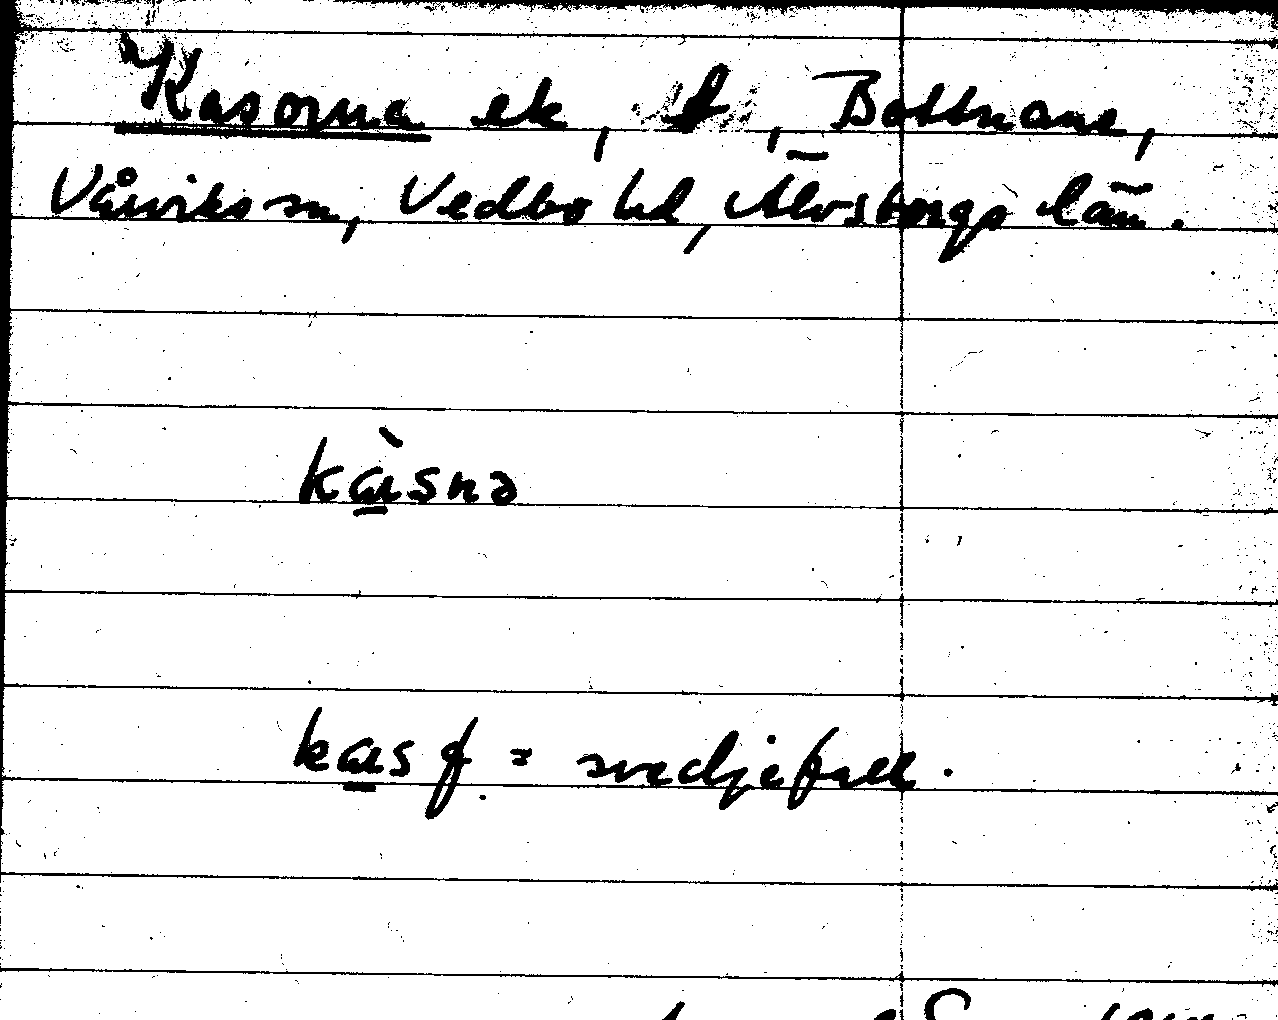 Kasorna ek, t, Bottnane,
Vårviks sn, Vedbo hd, Älvsborgs län.
kàsnə
kas f. = svedjefall.